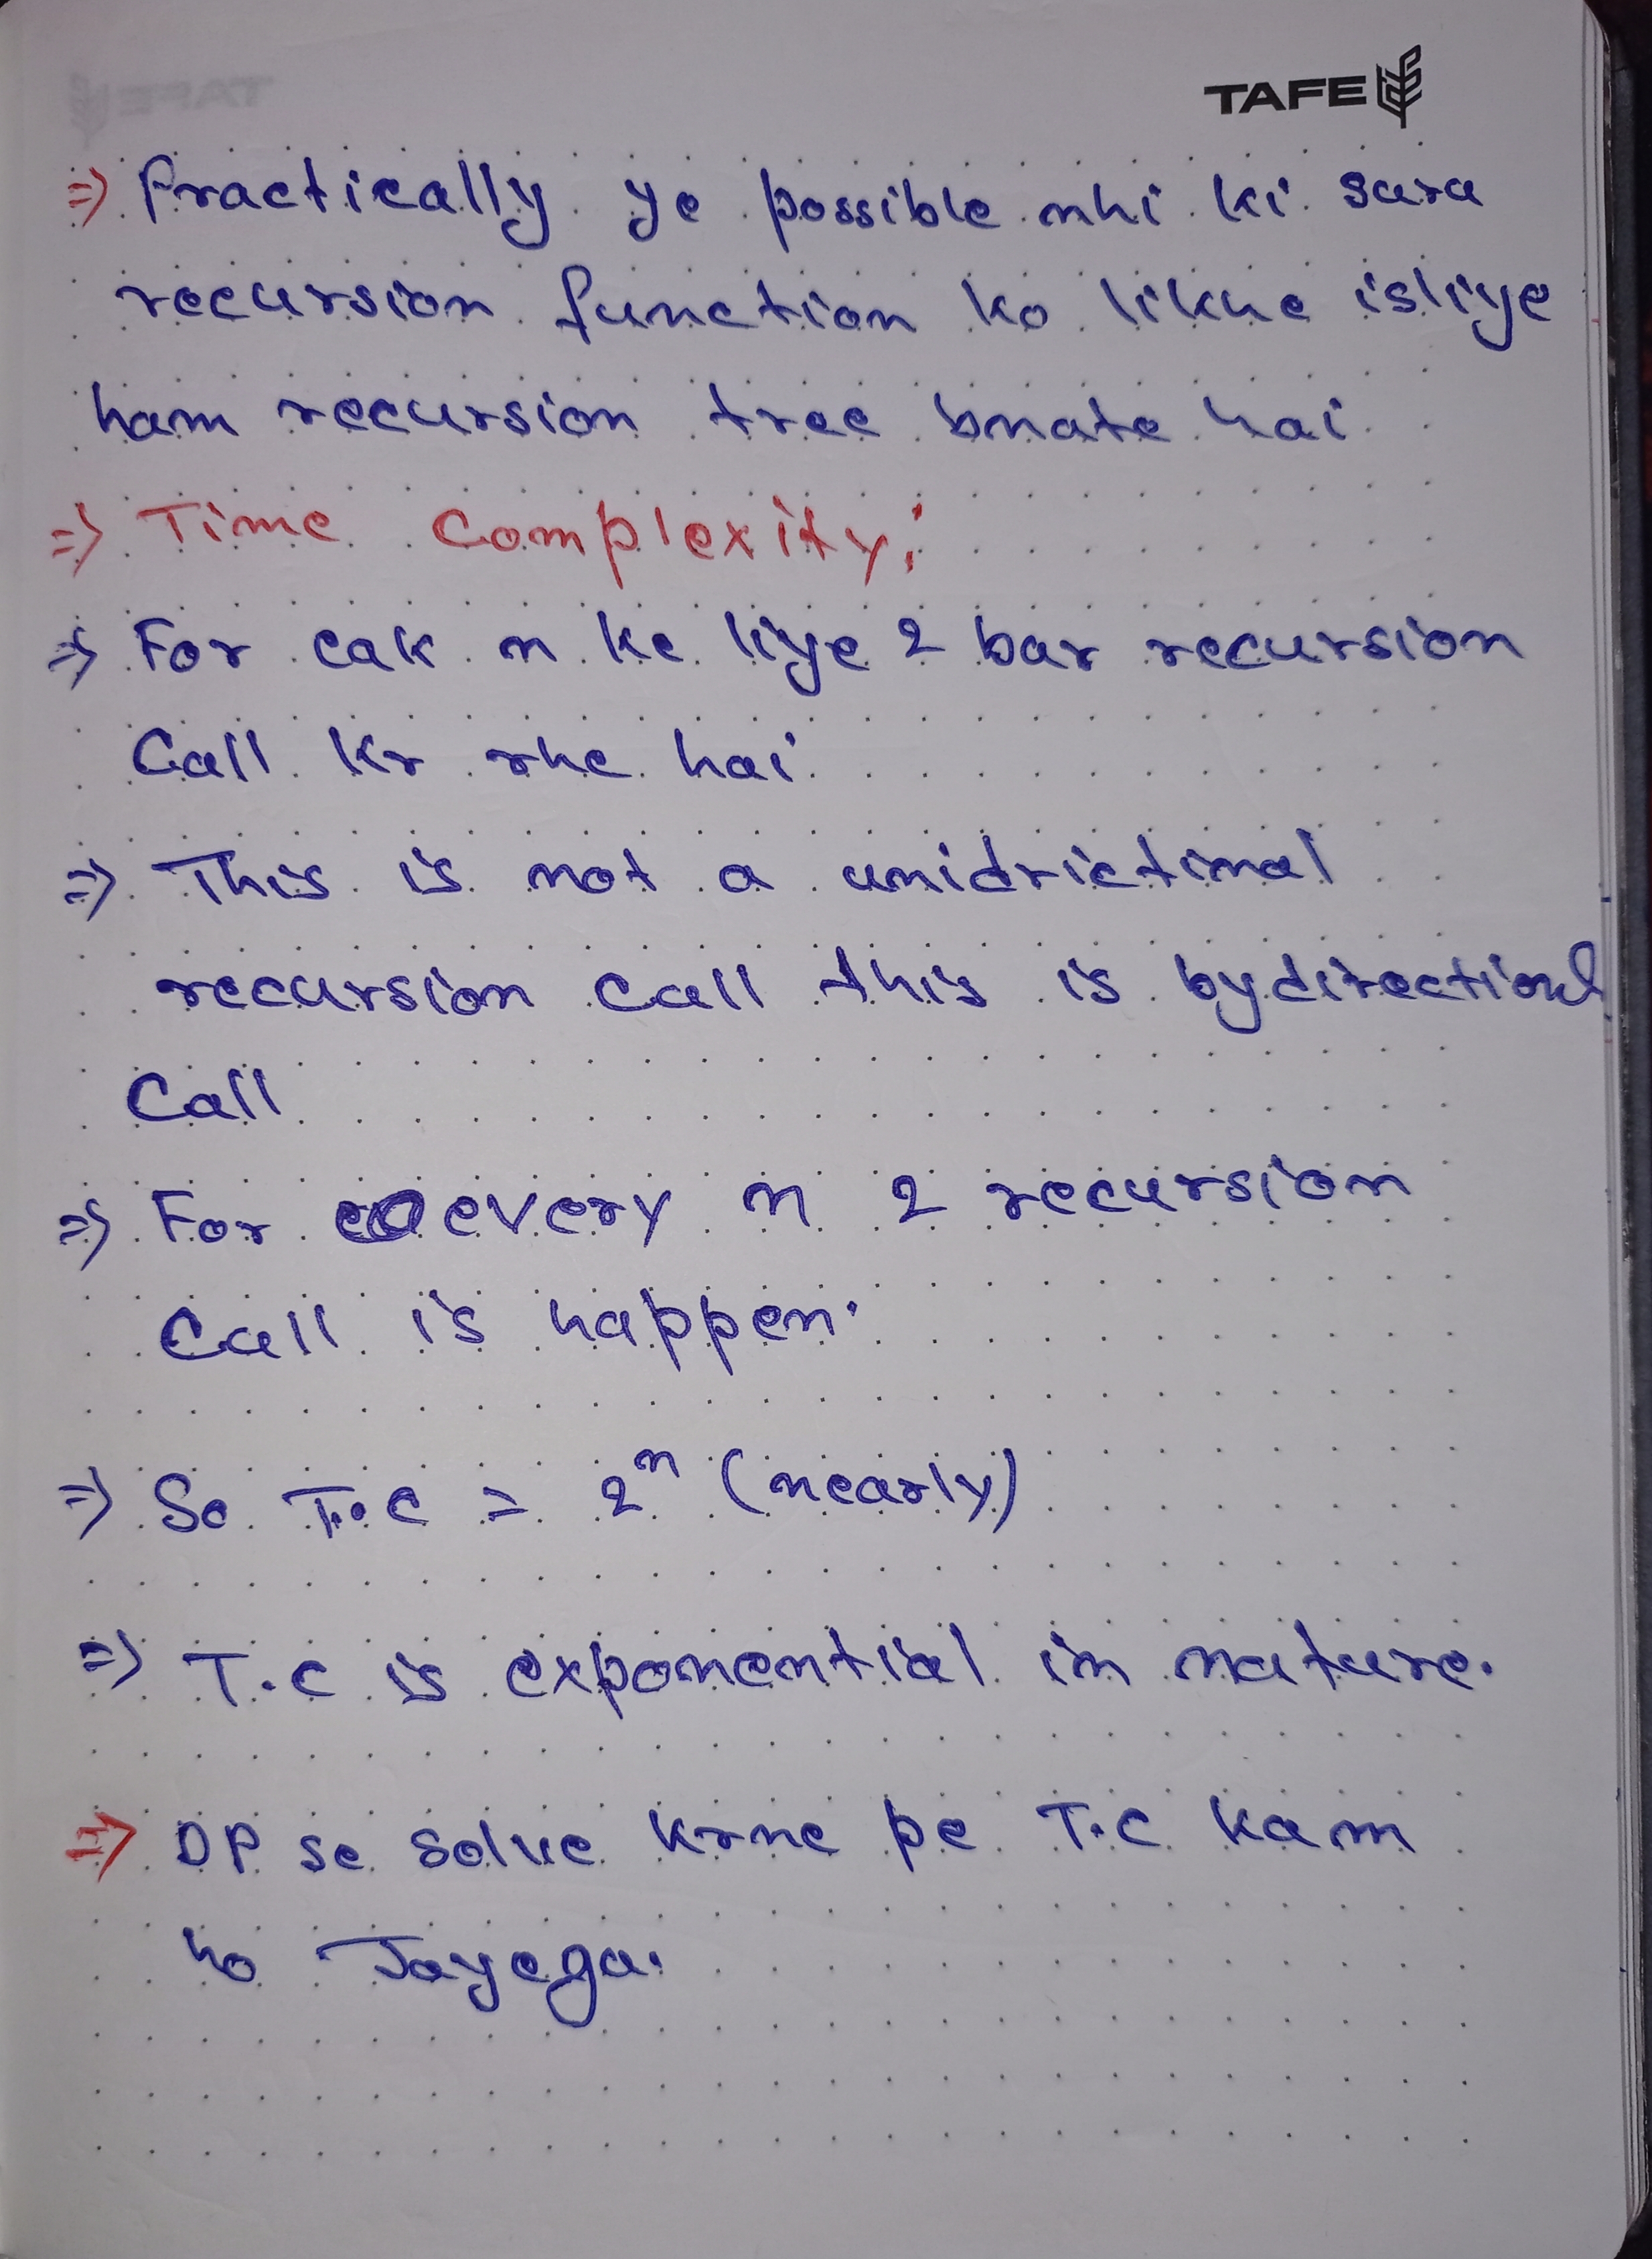 TAFE
=> Practically ye possible nhi ki sara
recursion function ko likhe isliye
ham recursion tree bnate hai
=> Time Complexity:
=> For eak n ke liye 2 bar recursion
Call kr rhe hai
=> This is not a unidrictinal
recursion call this is bydirectional
Call
=> For every n 2 recursion
Call is happen.
=> So T.C = 2ⁿ (nearly)
=> T.C is exponential in nature.
=> DP se solve krne pe T.C kam
ho Jayega.